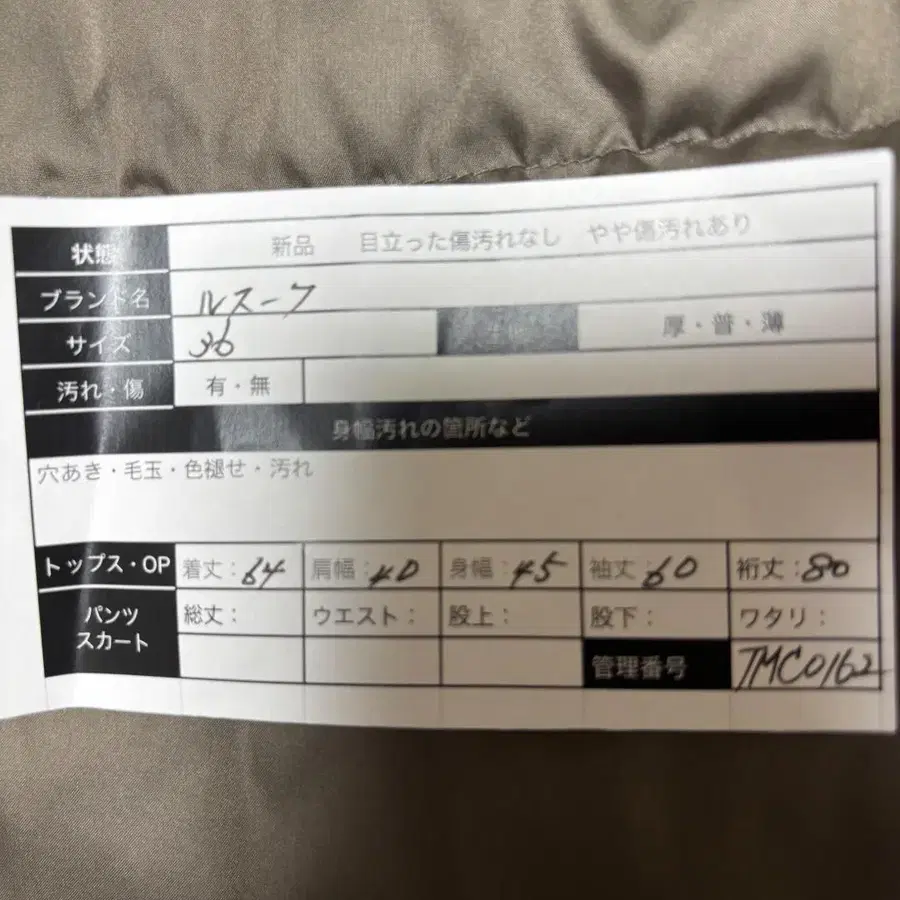 状態 新品 目立った傷汚れなし やや傷汚れあり
ブランド名 ルスーク
サイズ 36 厚・普・薄
汚れ・傷 有・無
身幅汚れの箇所など
穴あき・毛玉・色褪せ・汚れ
トップス・OP 着丈:64 肩幅:40 身幅:45 袖丈:60 裄丈:80
パンツ スカート 総丈: ウエスト: 股上: 股下: ワタリ:
管理番号 TMC0162